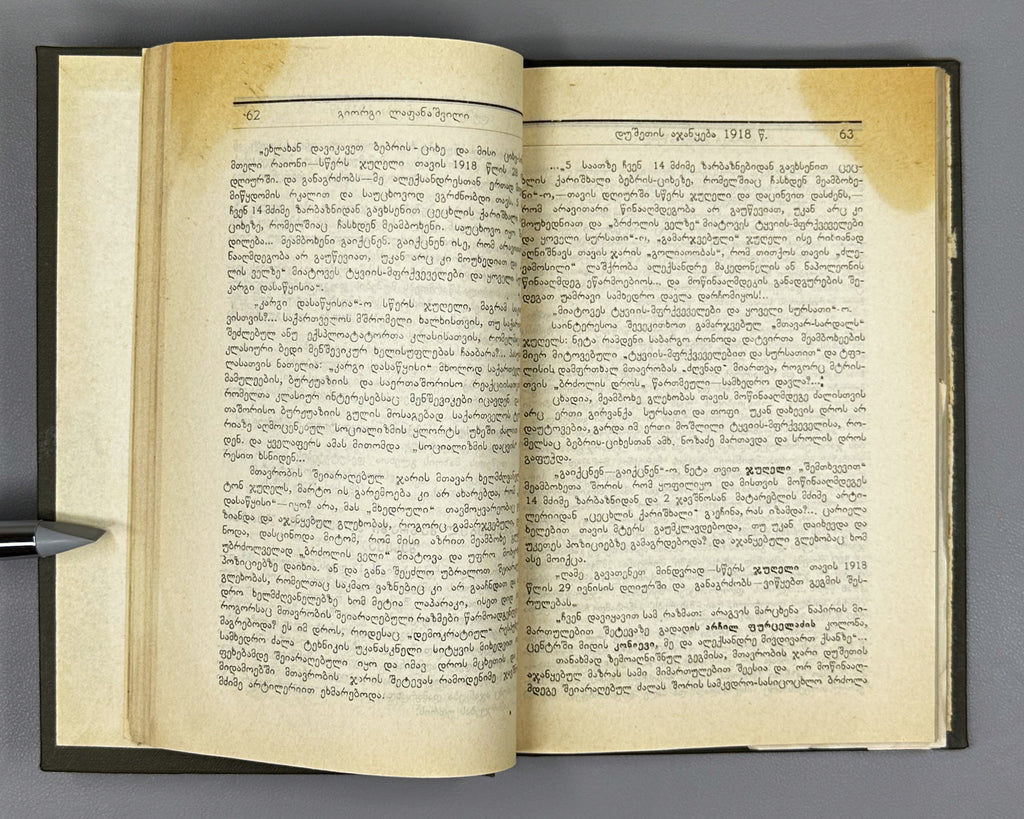 62 გიორგი ლაფანაშვილი
„ეხლახან დავიკავეთ ბებრის-ციხე და მისი
მთელი რაიონი—სწერს ჯუღელი თავის 1918 წლის 28
დღიურში. და განაგრძობს—მე ალექსანდრესთან ერთად
მიწყდომის რკალით და საუცხოვოდ ვგრძნობდი თავს.
ჩვენ 14 მძიმე ზარბაზნიდან გავხსენით ცეცხლის ქარიშხალი
ციხეზე, რომელშიაც ჩასხდენ მეამბოხენი. საუცხოვო იყო
დილება... მეამბოხენი გაიქცნენ. გაიქცნენ ისე, რომ
ნააღმდეგობა არ გაუწევიათ, უკან არც კი მოუხედიათ
ლის ველზე“ მიატოვეს ტყვიის-მფრქვეველები და ყოველი
კარგი დასაწყისია“.
„კარგი დასაწყისია“-ო სწერს ჯუღელი, მაგრამ
ვისთვის?... საქართველოს მშრომელი ხალხისთვის, თუ
შეძლებულ ანუ ექსპლოატატორთა კლასისათვის,
კლასიური ბედი მენშევიკურ ხელისუფლებას ჩააბარა?...
ლასათვის ნათელია: „კარგი დასაწყისი“ მხოლოდ
მამულეების, ბურჟუაზიის და საერთაშორისო რეაქციისათვის
რომელთა კლასიურ ინტერესებსაც მენშევიკები იცავდენ
თაშორისო ბურჟუაზიის გულის მოსაგებად საქართველოს
რიაზე აღმოცენებულ სოციალიზმის ყლორტს უხეში
დენ. და ყველაფერს ამას მითომდა „სოციალიზმის
რესით ხსნიდენ...
მთავრობის შეიარაღებულ ჯარის მთავარ
ტონ ჯუღელს, მარტო ის გარემოება კი არ ახარებდა, რომ
დასაწყისი“—იყო? არა, მას „მხედრული“
ზიანდა და აჯანყებულ გლეხობას, როგორც გამარჯვებული
ნოდა, დასცინოდა მიტომ, რომ მისი აზრით მეამბოხე
უბრძოლველად „ბრძოლის ველი“ მიატოვა და უფრო
პოზიციებზე დაიხია. ან და განა შეეძლო უბრალოთ
გლეხობას, რომელთაც საკმაო ვაზნებიც კი არ გააჩნდათ
დრო ხელმძღვანელებზე ხომ მეტია ლაპარაკი, ისეთ დიდ
როგორსაც მთავრობის შეიარაღებული რაზმები
მაგრებოდა? ეს იმ დროს, როდესაც „დემოკრატიულ“
სამხედრო ძალა ტეხნიკის უკანასკნელი სიტყვის
ფეხებამდე შეიარაღებული იყო და იმავ დროს მცხეთის
მიდამოებში მთავრობის ჯარის შეტევას რამოდენიმე
მძიმე არტილერიით ეხმარებოდა.
დუშეთის აჯანყება 1918 წ. 63
...„5 საათზე ჩვენ 14 მძიმე ზარბაზნებიდან გავხსენით ცეც-
ხლის ქარიშხალი ბებრის-ციხეზე, რომელშიაც ჩასხდენ მეამბოხე-
ნი“-ო,—თავის დღიურში სწერს ჯუღელი და დაცინვით დასძენს,—
რომ არავითარი წინააღმდეგობა არ გაუწევიათ, უკან არც კი
მოუხედნიათ და „ბრძოლის ველზე“ მიატოვეს ტყვიის-მფრქვეველები
და ყოველი სურსათი“-ო, „გამარჯვებული“ ჯუღელი ისე რიხიანად
აღნიშნავს თავის ჯარის „გოლიაოობას“, რომ თითქოს თავის „ძლე-
ვამოსილი“ ლაშქრობა ალექსანდრე მაკედონელის ან ნაპოლეონის
წინააღმდეგ ეწარმოებიოს... და მოწინააღმდეკის განადგურების შე-
დეგათ უამრავი სამხედრო დავლა დარჩომიყოს!..
„მიატოვეს ტყვიის-მფრქვეველები და ყოველი სურსათი“-ო.
საინტერესოა შევეკითხოთ გამარჯვებულ „მთავარ-სარდალს“
ჯუღელს: ნეტა რამდენი საბარგო როხოდა დატვირთა მეამბოხეების
მიერ მიტოვებული „ტყვიის-მფრქვეველებით და სურსათით“ და ტფი-
ლისის დამფრთხალ მთავრობას „ძღვნად“ მიართვა, როგორც მტრის-
თვის „ბრძოლის დროს“ წართმეული—სამხედრო დავლა?...
ცხადია, მეამბოხე გლეხობას თავის მოწინააღმდეგე ძალისთვის
არც ერთი გირვანქა სურსათი და თოფი უკან დახევის დროს არ
დაუტოვებია, გარდა იმ ერთი მოშლილი ტყვიის-მფრქვეველისა, რო-
მელსაც ბებრის-ციხესთან ამხ. ნოზაძე მართავდა და სროლის დროს
გაფუჭდა.
„გაიქცნენ—გაიქცნენ“-ო, ნეტა თვით ჯუღელი „შემთხვევით“
მეამბოხეთა შორის რომ ყოფილიყო და მისთვის მოწინააღმდეგეს
14 მძიმე ზარბაზნიდან და 2 ჯავშნოსან მატარებლის მძიმე არტი-
ლერიიდან „ცეცხლის ქარიშხალი“ გაეჩინა, რას იზამდა?... ცარიელა
ხელებით თავის მტერს გაუმკლავდებოდა, თუ უკან დაიხევდა და
უკეთეს პოზიციებზე გამაგრდებოდა? და აჯანყებული გლეხობაც ხომ
ასე მოიქცა.
„ღამე გავათენეთ მინდვრად—სწერს ჯუღელი თავის 1918
წლის 29 ივნისის დღიურში და განაგრძობს—ვიწყებთ გეგმის შეს-
რულებას„
„ჩვენ დავიყავით სამ რაზმათ: არაგვის მარცხენა ნაპირის მი-
მართულებით შეტევაზე გადადის არჩილ ფურცელაძის კოლონა,
ცენტრში მიდის კონიევი, მე და ალექსანდრე მივდივართ ქსანზე“...
თანახმად ზემოაღნიშნულ გეგმისა, მთავრობის ჯარი დუშეთის
აჯანყებულ მაზრას სამი მიმართულებით შეესია და ორ მოწინააღ-
მდეგე შეიარაღებულ ძალას შორის სამკვდრო-სასიცოცხლო ბრძოლა